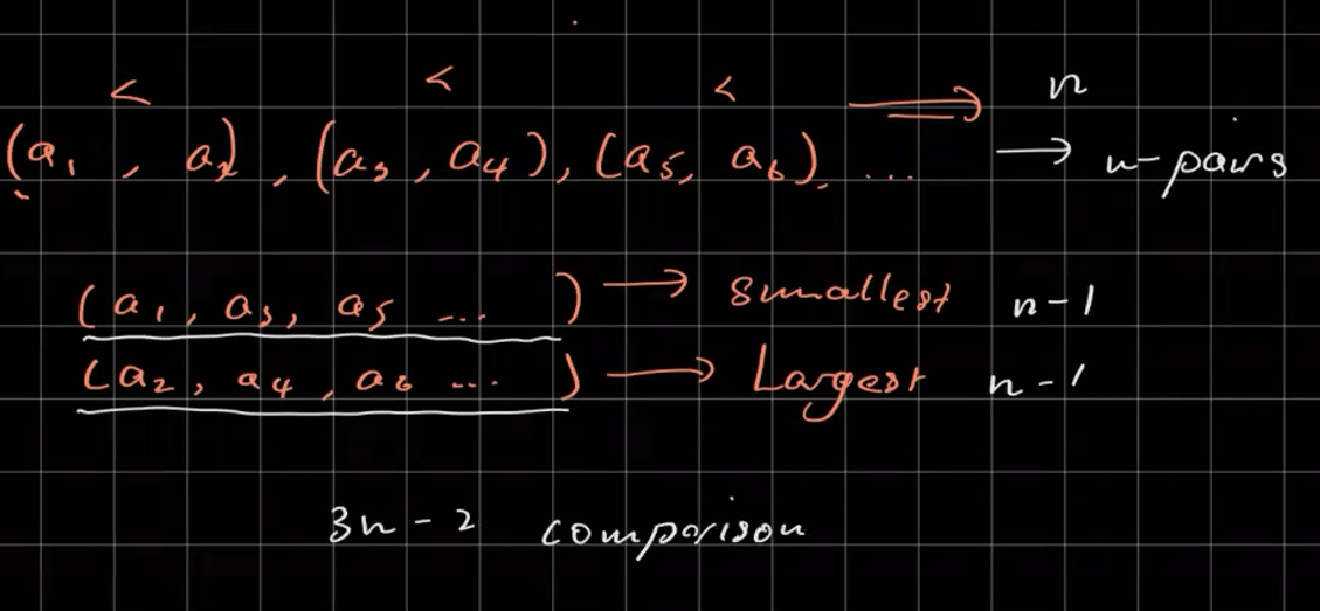 < < < ⟹ n
(a₁ , a₂) , (a₃ , a₄), (a₅, a₆), ... → n-pairs
(a₁, a₃, a₅ ... ) → smallest n-1
(a₂, a₄, a₆ ... ) → Largest n-1
3n-2 comparison